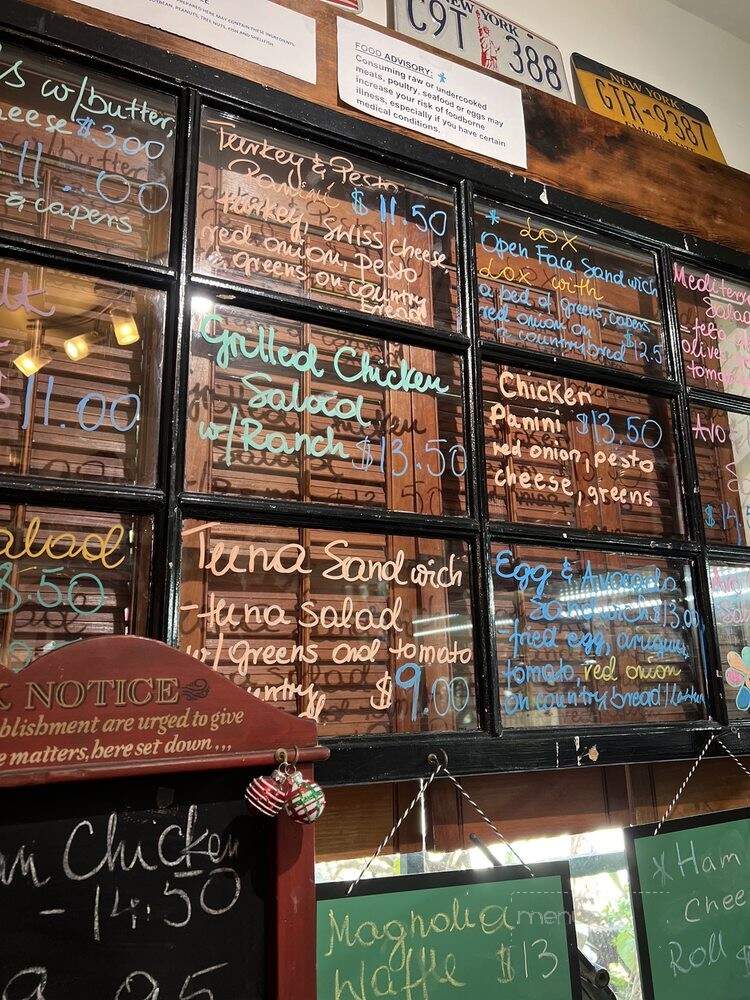 PREPARED HERE MAY CONTAIN THESE INGREDIENTS:
SOYBEAN, PEANUTS, TREE NUTS, FISH AND SHELLFISH
FOOD ADVISORY: *
Consuming raw or undercooked
meats, poultry, seafood or eggs may
increase your risk of foodborne
illness, especially if you have certain
medical conditions.
NEW YORK
C9T 388
NEW YORK
GTR 9387
w/butter,
$3.00
& capers
Turkey & Pesto
Panini $11.50
- turkey, swiss cheese,
red onion, pesto
& greens on country
bread
* LOX
Open Face Sandwich
Lox with
a bed of greens, capers
red onion on
country bread $12.5
11.00
Grilled Chicken
Salad
w/Ranch $13.50
Chicken
Panini $13.50
red onion, pesto
cheese, greens
alad
.50
Tuna Sandwich
- tuna salad
w/greens and tomato
$9.00
Egg & Avocado
Sandwich $13.00
- fried egg, arugula,
tomato, red onion
on country bread
NOTICE
blishment are urged to give
e matters, here set down...
Chicken
- 14.50
Magnolia
Waffle $13
* Ham
Chee
Roll $
menu